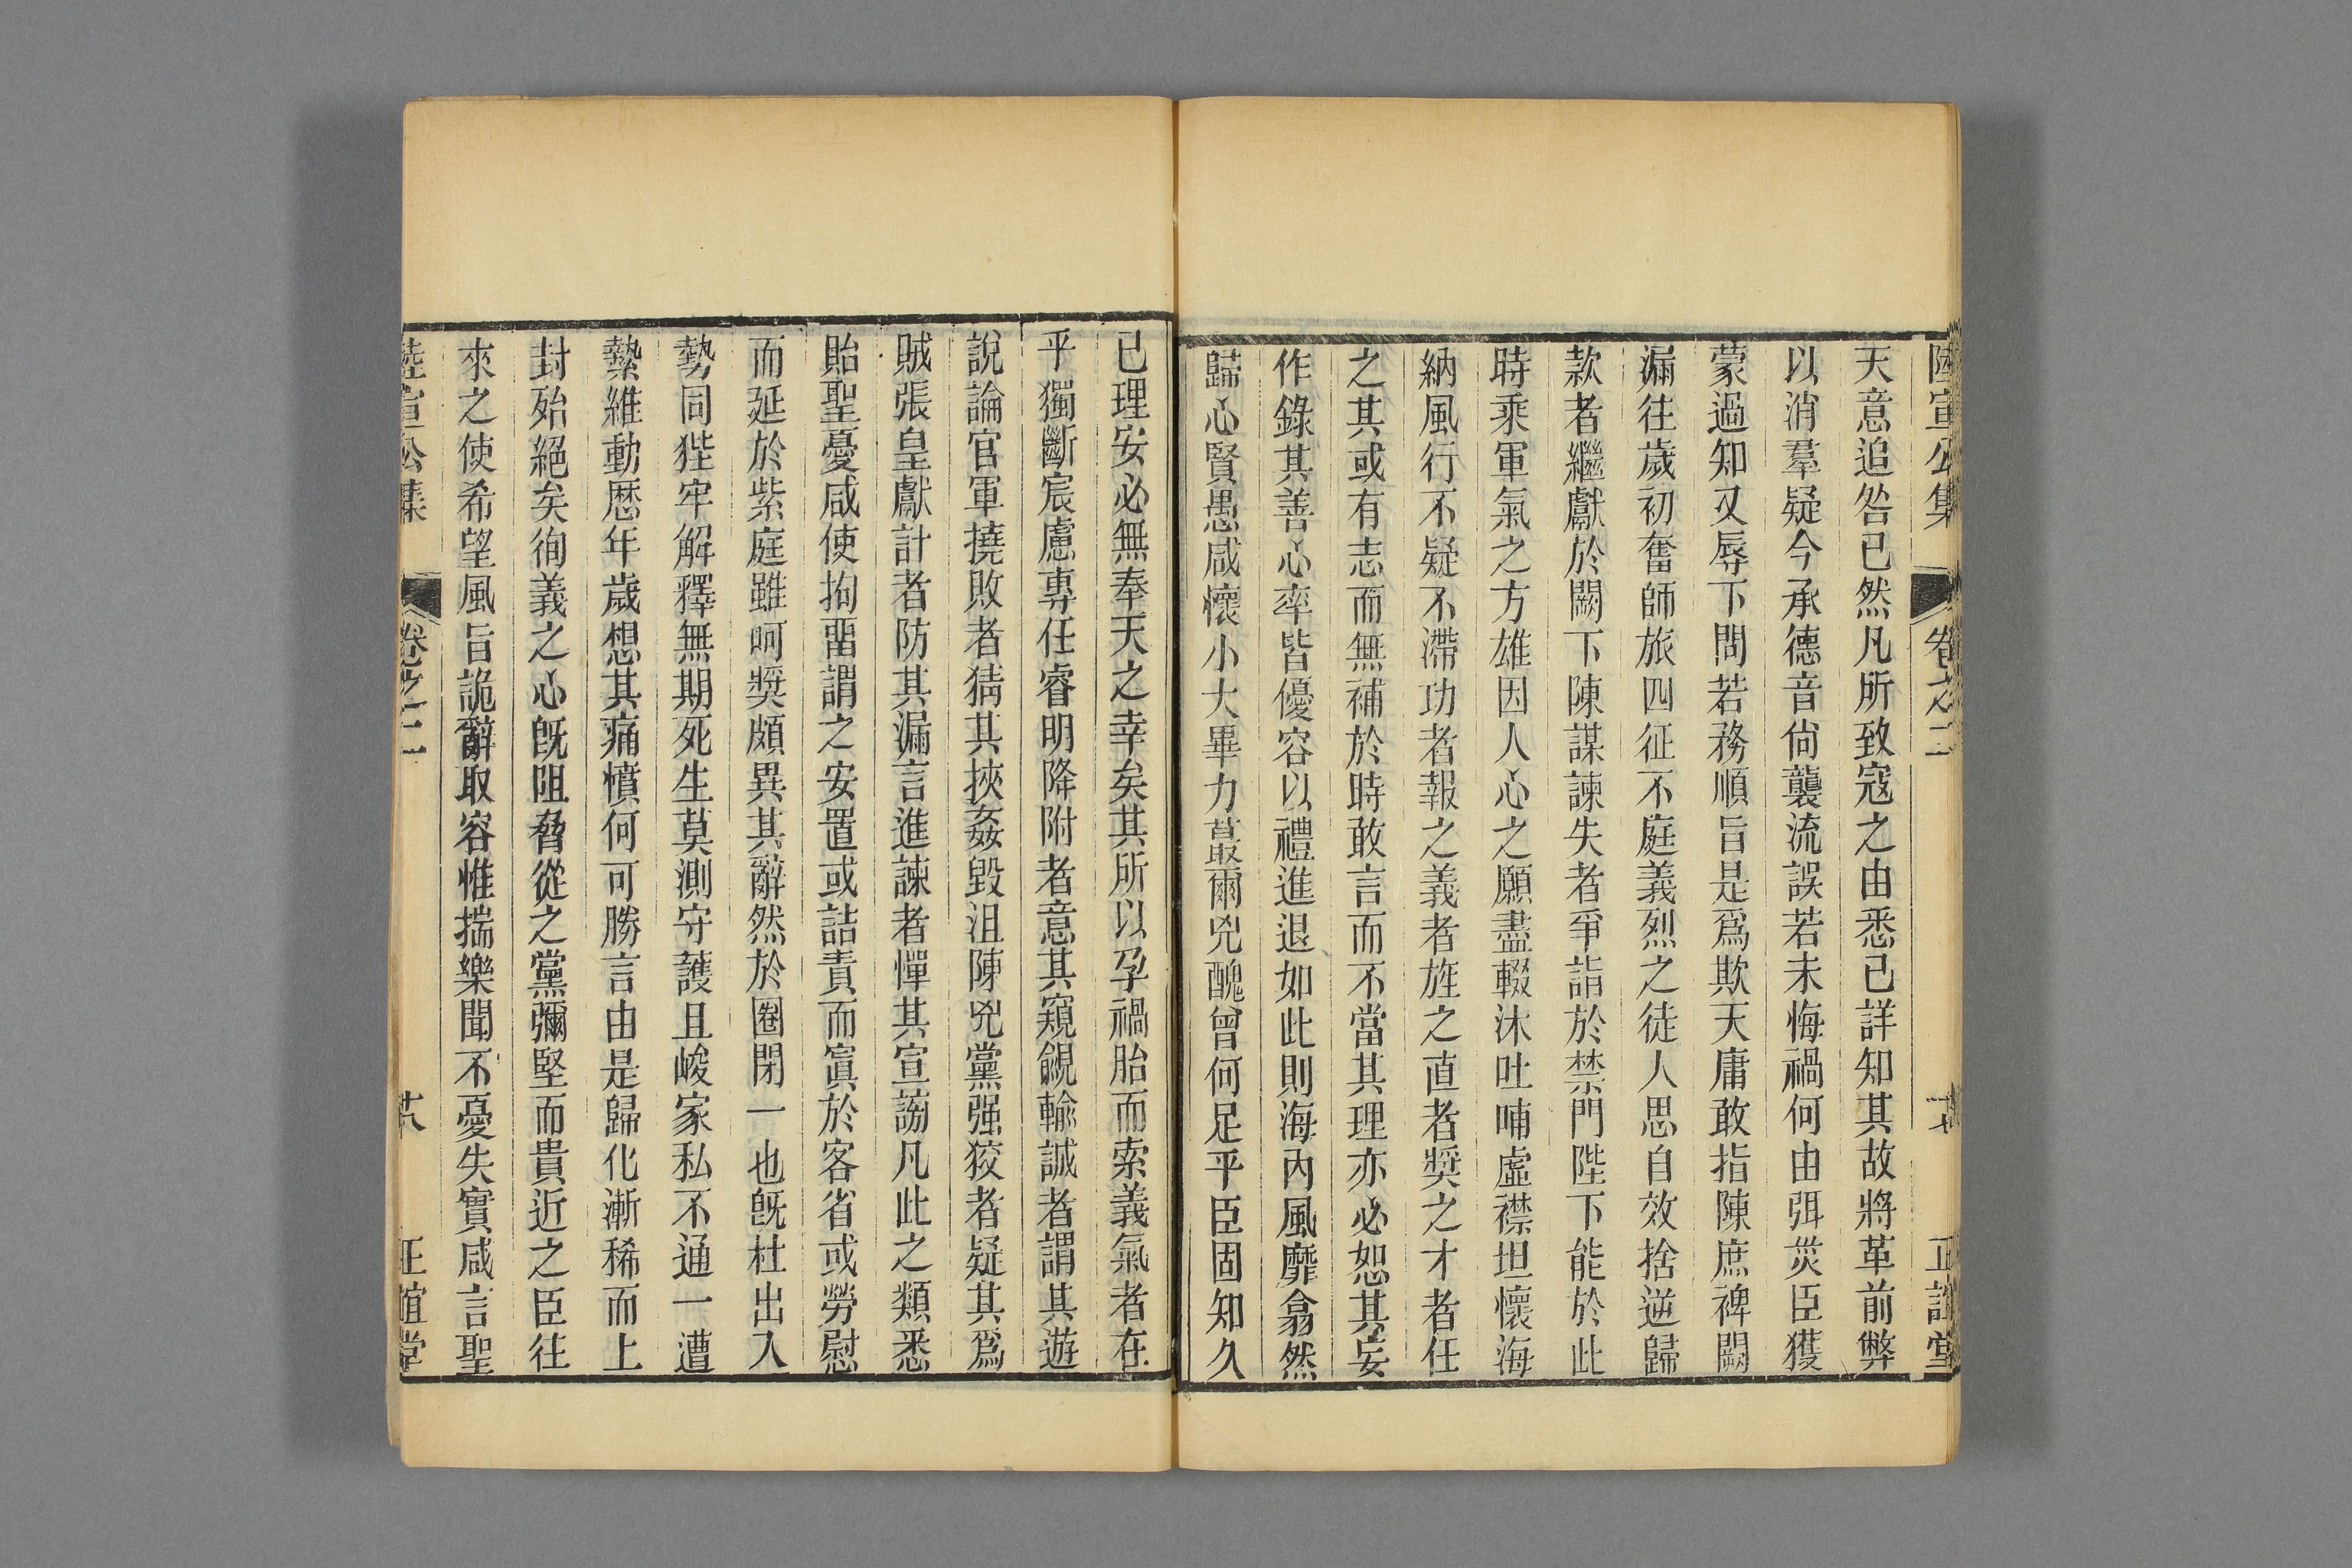 陸宣公集 卷之二 十七 正誼堂
天意追咎已然凡所致寇之由悉已詳知其故將革前弊
以消羣疑今承德音尙襲流誤若未悔禍何由弭災臣獲
蒙過知又辱下問若務順旨是爲欺天庸敢指陳庶裨闕
漏往歲初奮師旅四征不庭義烈之徒人思自效捨逆歸
款者繼獻於闕下陳謀諫失者爭詣於禁門陛下能於此
時乘軍氣之方雄因人心之願盡輟沐吐哺虛襟坦懷海
納風行不疑不滯功者報之義者旌之直者獎之才者任
之其或有志而無補於時敢言而不當其理亦必恕其妄
作錄其善心率皆優容以禮進退如此則海內風靡翕然
歸心賢愚咸懷小大畢力蕞爾兇醜曾何足平臣固知久
已理安必無奉天之幸矣其所以孕禍胎而索義氣者在
乎獨斷宸慮專任睿明降附者意其窺覦輸誠者謂其遊
說論官軍撓敗者猜其挾姦毀沮陳兇黨强狡者疑其爲
賊張皇獻計者防其漏言進諫者憚其宣謗凡此之類悉
貽聖憂咸使拘畱謂之安置或詰責而寘於客省或勞慰
而延於紫庭雖呵獎頗異其辭然於圈閉一也旣杜出入
勢同狴牢解釋無期死生莫測守護且峻家私不通一遭
縶維動歷年歲想其痛憤何可勝言由是歸化漸稀而上
封殆絕矣徇義之心旣阻脅從之黨彌堅而貴近之臣往
來之使希望風旨詭辭取容惟揣樂聞不憂失實咸言聖
陸宣公集 卷之二 十八 正誼堂